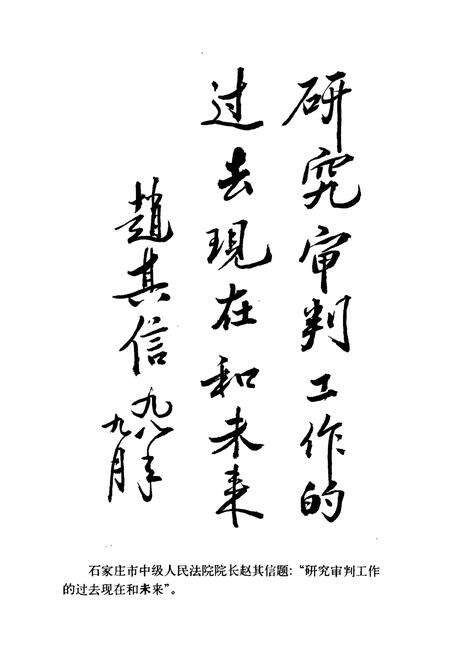 研究审判工作的
过去现在和未来
趙其信
九八年
九月
石家庄市中级人民法院院长赵其信题：“研究审判工作
的过去现在和未来”。